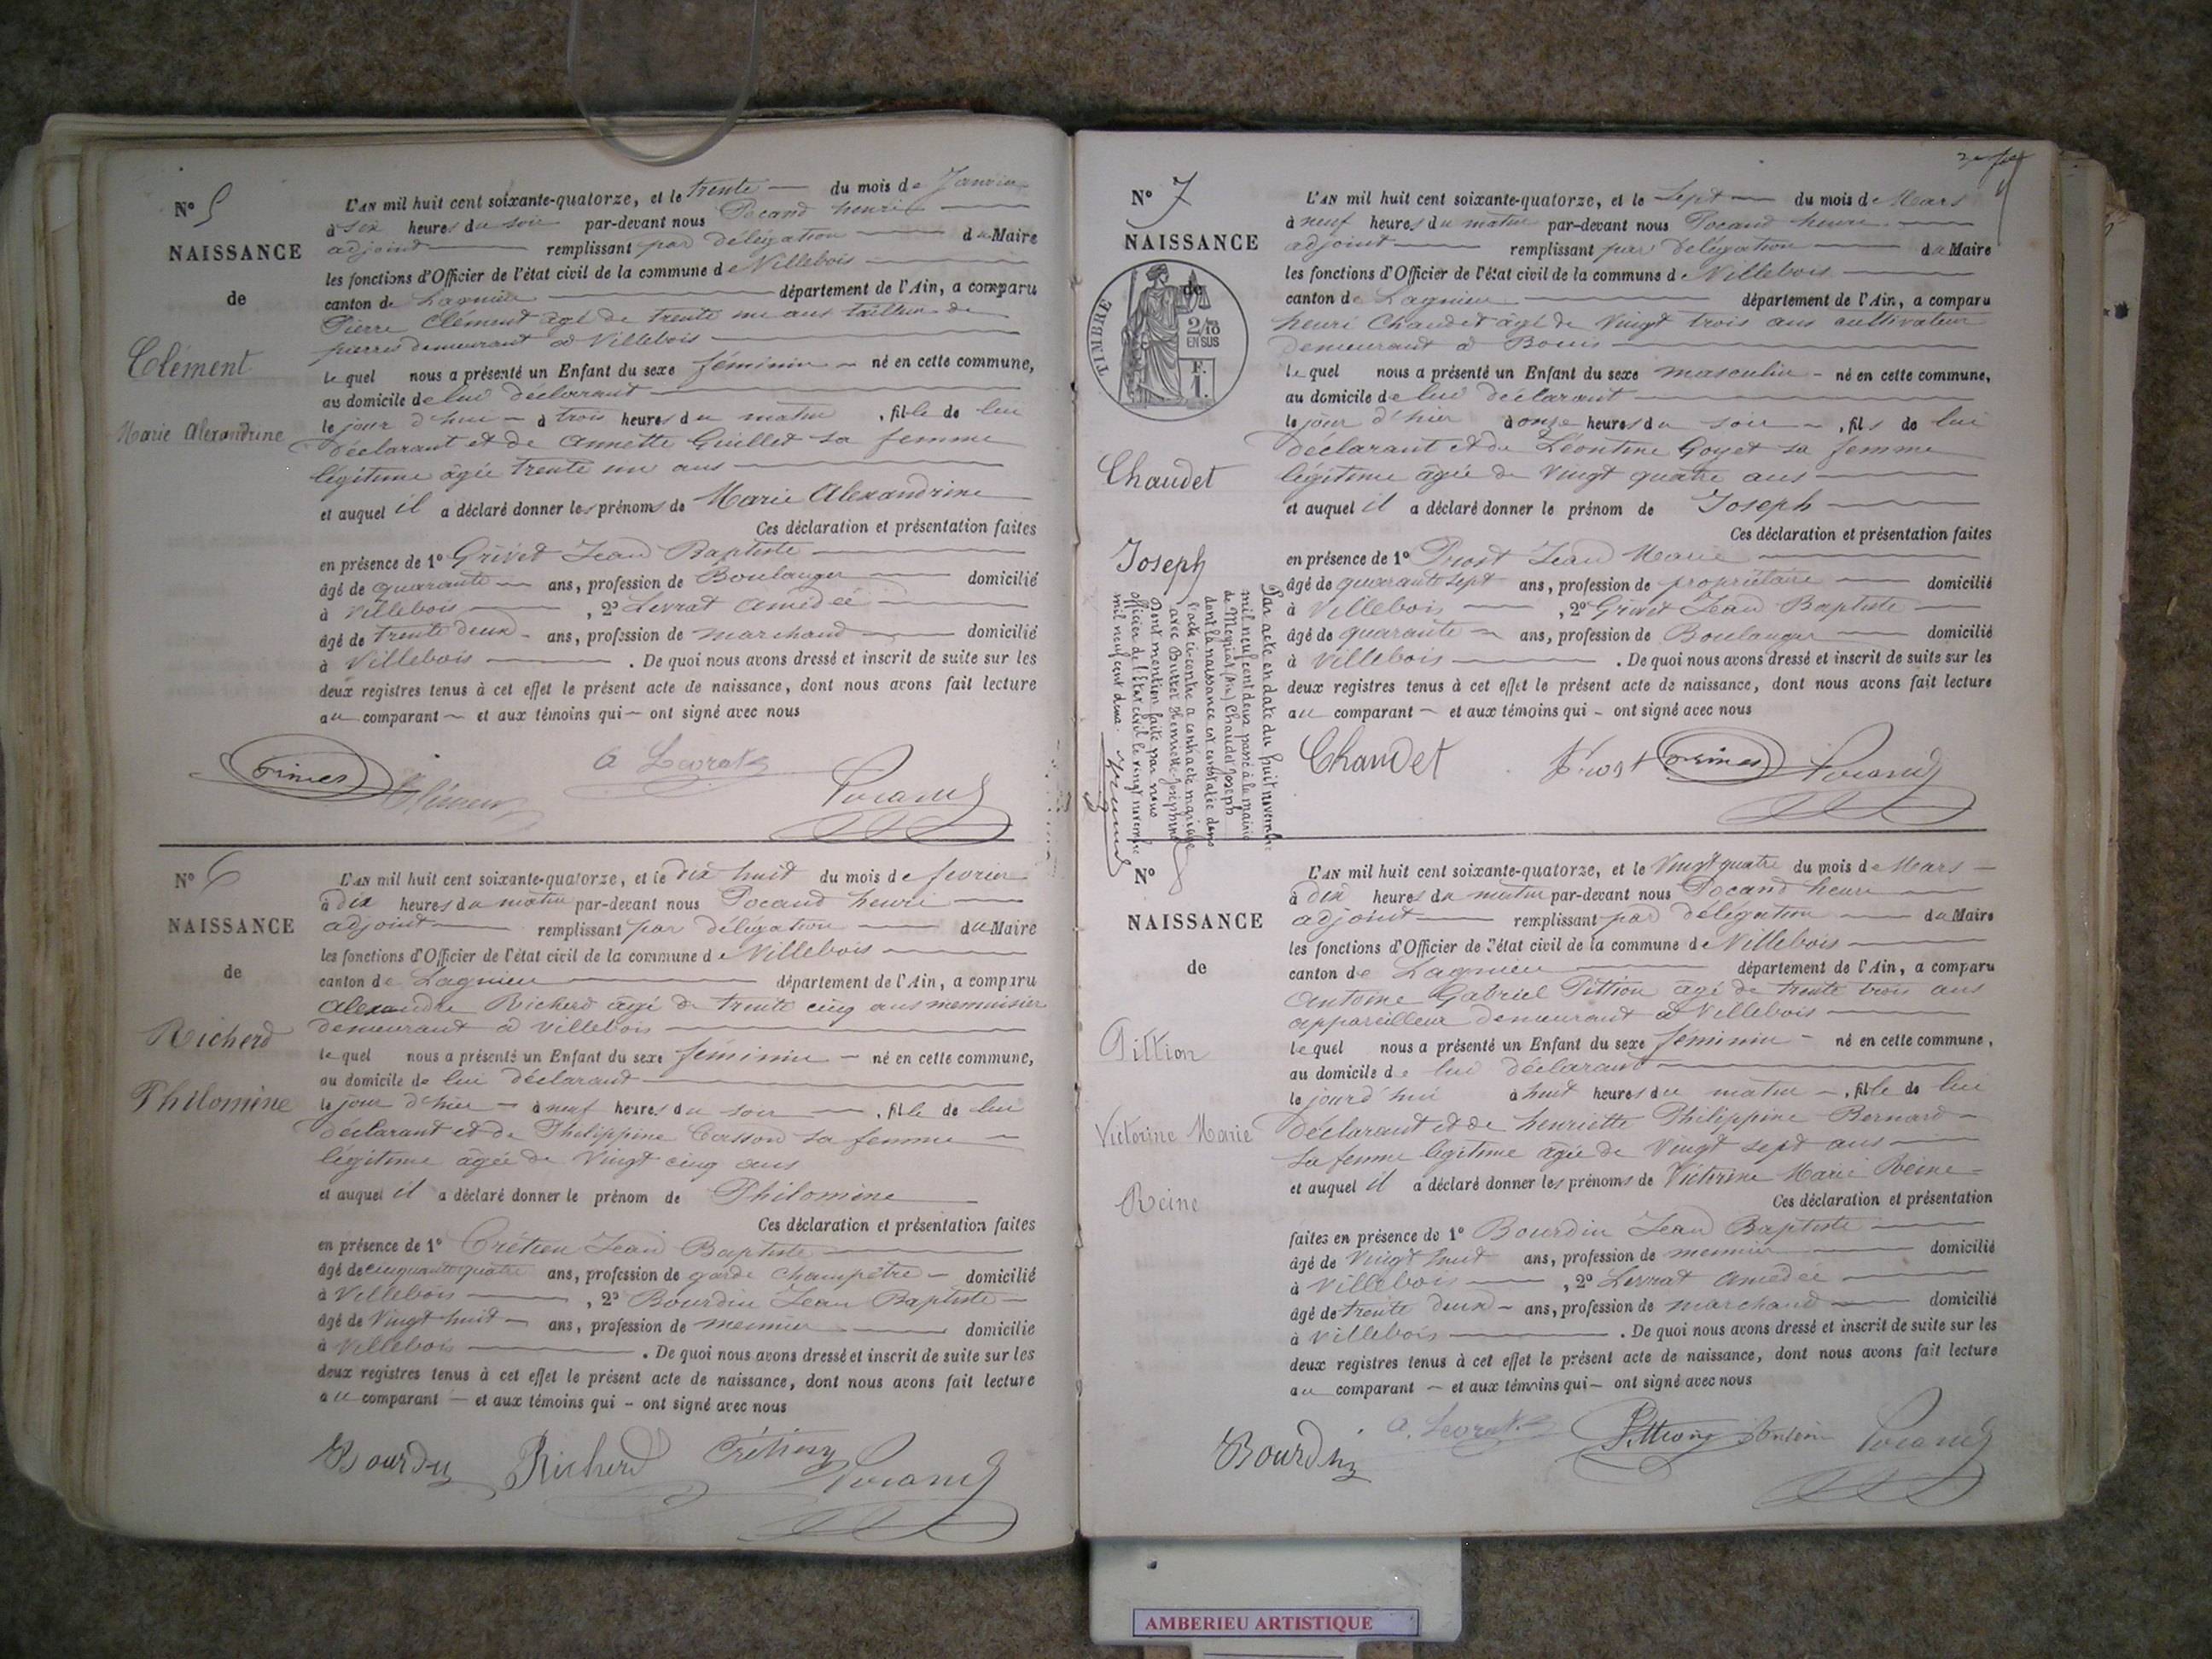 N° 5
NAISSANCE
de
Clément
Marie Alexandrine
L'AN mil huit cent soixante-quatorze, et le trente du mois de Janvier
à six heures du soir par-devant nous Pocand henri
adjoint remplissant par délégation du Maire
les fonctions d'Officier de l'état civil de la commune de Villebois
canton de Lagnieu département de l'Ain, a comparu
Pierre Clément âgé de trente un ans tailleur de
pierres demeurant à Villebois
lequel nous a présenté un Enfant du sexe féminin né en cette commune,
au domicile de lui déclarant
le jour d'hui à trois heures du matin, fille de lui
déclarant et de Annette Guillet sa femme
légitime âgée trente un ans
et auquel il a déclaré donner les prénoms de Marie Alexandrine
Ces déclaration et présentation faites
en présence de 1° Grivet Jean Baptiste
âgé de quarante ans, profession de Boulanger domicilié
à Villebois, 2° Levrat Amédée
âgé de trente deux ans, profession de marchand domicilié
à Villebois. De quoi nous avons dressé et inscrit de suite sur les
deux registres tenus à cet effet le présent acte de naissance, dont nous avons fait lecture
au comparant et aux témoins qui ont signé avec nous
Clément A Levrat Pocand
N° 6
NAISSANCE
de
Richerd
Philomène
L'AN mil huit cent soixante-quatorze, et le dix huit du mois de fevrier
à dix heures du matin par-devant nous Pocand henri
adjoint remplissant par délégation du Maire
les fonctions d'Officier de l'état civil de la commune de Villebois
canton de Lagnieu département de l'Ain, a comparu
Alexandre Richerd âgé de trente cinq ans menuisier
demeurant à Villebois
lequel nous a présenté un Enfant du sexe féminin né en cette commune,
au domicile de lui déclarant
le jour d'hier à neuf heures du soir, fille de lui
déclarant et de Philippine Casson sa femme
légitime âgée de vingt cinq ans
et auquel il a déclaré donner le prénom de Philomène
Ces déclaration et présentation faites
en présence de 1° Crétien Jean Baptiste
âgé de cinquante quatre ans, profession de garde champêtre domicilié
à Villebois, 2° Bourdin Jean Baptiste
âgé de vingt huit ans, profession de meunier domicilié
à Villebois. De quoi nous avons dressé et inscrit de suite sur les
deux registres tenus à cet effet le présent acte de naissance, dont nous avons fait lecture
au comparant et aux témoins qui ont signé avec nous
Bourdin Richerd Crétien Pocand
N° 7
NAISSANCE
de
TIMBRE
2/10
EN SUS
F.
1.
Chaudet
Joseph
Par acte en date du huit novembre
mil neuf cent deux passé à la mairie
de (Ain) Chaudet Joseph
dont la naissance est constatée dans
l'acte ci-contre a contracté mariage
avec Henriette Joséphine
Dont mention faite par nous
officier de l'Etat civil le vingt novembre
mil neuf cent deux.
L'AN mil huit cent soixante-quatorze, et le sept du mois de Mars
à neuf heures du matin par-devant nous Pocand henri
adjoint remplissant par délégation du Maire
les fonctions d'Officier de l'état civil de la commune de Villebois
canton de Lagnieu département de l'Ain, a comparu
henri Chaudet âgé de vingt trois ans cultivateur
demeurant à Bouis
lequel nous a présenté un Enfant du sexe masculin né en cette commune,
au domicile de lui déclarant
le jour d'hier à onze heures du soir, fils de lui
déclarant et de Léontine Goyet sa femme
légitime âgée de vingt quatre ans
et auquel il a déclaré donner le prénom de Joseph
Ces déclaration et présentation faites
en présence de 1° Prost Jean Marie
âgé de quarante sept ans, profession de propriétaire domicilié
à Villebois, 2° Grivet Jean Baptiste
âgé de quarante ans, profession de Boulanger domicilié
à Villebois. De quoi nous avons dressé et inscrit de suite sur les
deux registres tenus à cet effet le présent acte de naissance, dont nous avons fait lecture
au comparant et aux témoins qui ont signé avec nous
Chaudet Prost Pocand
N° 8
NAISSANCE
de
Pittion
Victorine Marie
Reine
L'AN mil huit cent soixante-quatorze, et le vingt quatre du mois de Mars
à dix heures du matin par-devant nous Pocand henri
adjoint remplissant par délégation du Maire
les fonctions d'Officier de l'état civil de la commune de Villebois
canton de Lagnieu département de l'Ain, a comparu
Antoine Gabriel Pittion âgé de trente trois ans
appareilleur demeurant à Villebois
lequel nous a présenté un Enfant du sexe féminin né en cette commune,
au domicile de lui déclarant
le jour d'hui à huit heures du matin, fille de lui
déclarant et de henriette Philippine Bernard
sa femme légitime âgée de vingt sept ans
et auquel il a déclaré donner les prénoms de Victorine Marie Reine
Ces déclaration et présentation
faites en présence de 1° Bourdin Jean Baptiste
âgé de vingt huit ans, profession de meunier domicilié
à Villebois, 2° Levrat Amédée
âgé de trente deux ans, profession de marchand domicilié
à Villebois. De quoi nous avons dressé et inscrit de suite sur les
deux registres tenus à cet effet le présent acte de naissance, dont nous avons fait lecture
au comparant et aux témoins qui ont signé avec nous
Bourdin A. Levrat Pittion Antoine Pocand
AMBERIEU ARTISTIQUE